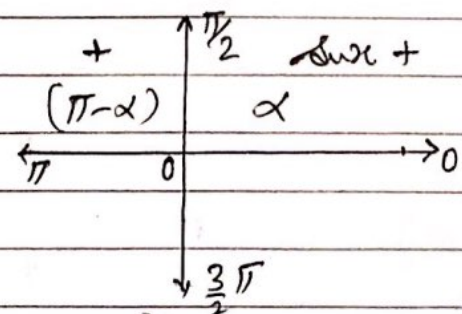 π/2
+ sinx +
(π-α) α
π 0 0
3/2 π